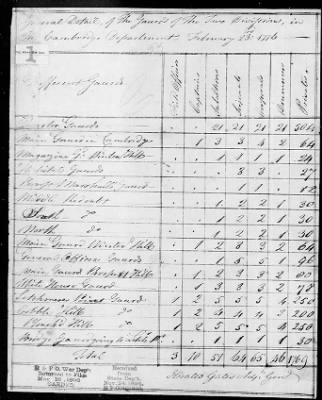 General Detail, of the Guards of the Two Divisions, in
the Cambridge Department February 23d. 1776
1
Different Guards
Field Officers Captains Subalterns Serjeants Corporals Drummers Privates
Guards 21 21 21 21 504
Main Guard in Cambridge 1 3 3 4 2 64
Magazine Gd. Winter Hill 1 1 1 1 24
Guards 3 3 27
Guard 1 1 12
Middle Redoubt 1 2 2 1 30
South do 1 2 2 1 30
North do 1 2 2 1 30
Main Guard Winter Hill 1 2 3 3 2 64
General Officers Guards 1 5 5 1 96
Main Guard Prospect Hill 1 2 3 3 2
White House Guard 1 2 3 3 2 78
Letchmores Point Guard 1 2 5 5 5 4 250
Cobble Hill do 1 2 4 4 4 3 200
Plow'd Hill do 1 2 5 5 5 4 250
Bridge Guard
Total 3 10 51 64 65 46
Horatio Gates Adjt. Genl
R & P O. War Dept.
Returned to File
CARDED
Received
from
State Dept.